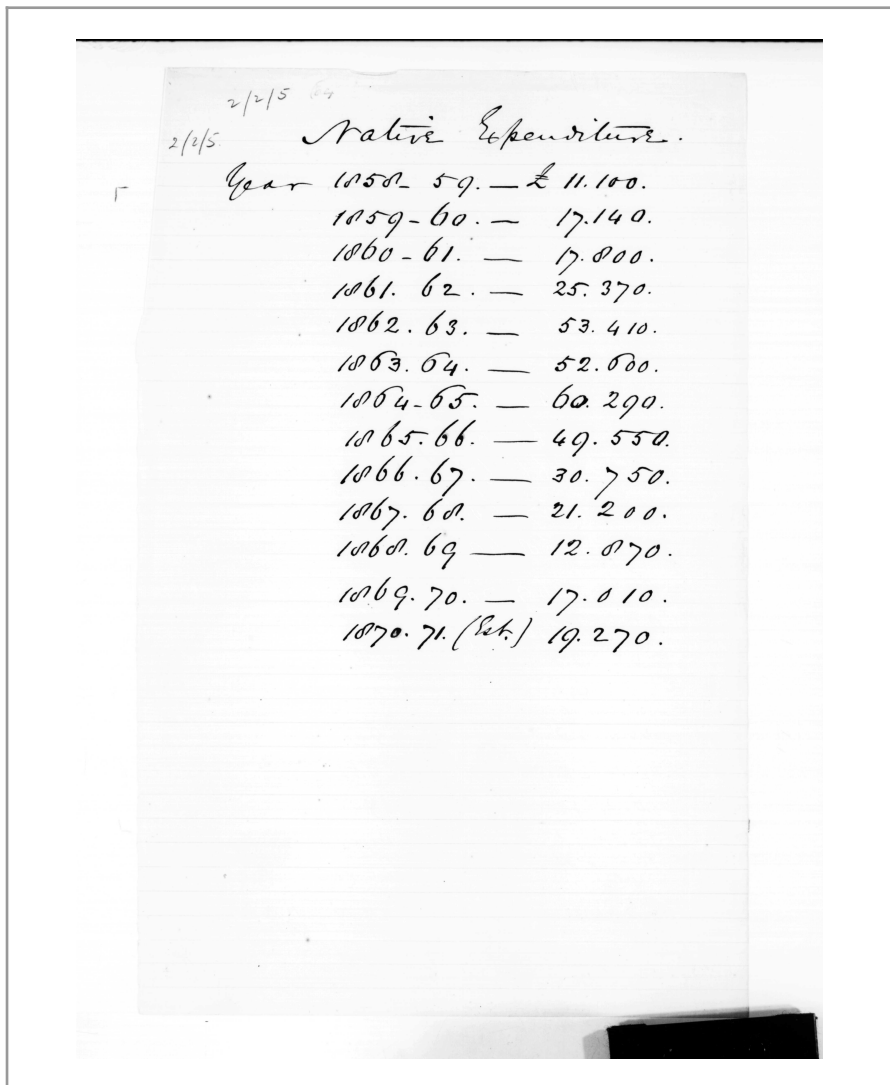 2/2/5
2/2/5.
Native Expenditure.
Year 1858-59. — £ 11.100.
1859-60. — 17.140.
1860-61. — 17.800.
1861. 62. — 25.370.
1862. 63. — 53.410.
1863. 64. — 52.600.
1864-65. — 60.290.
1865. 66. — 49.550.
1866. 67. — 30.750.
1867. 68. — 21.200.
1868. 69 — 12.870.
1869. 70. — 17.010.
1870. 71. (Est.) 19.270.